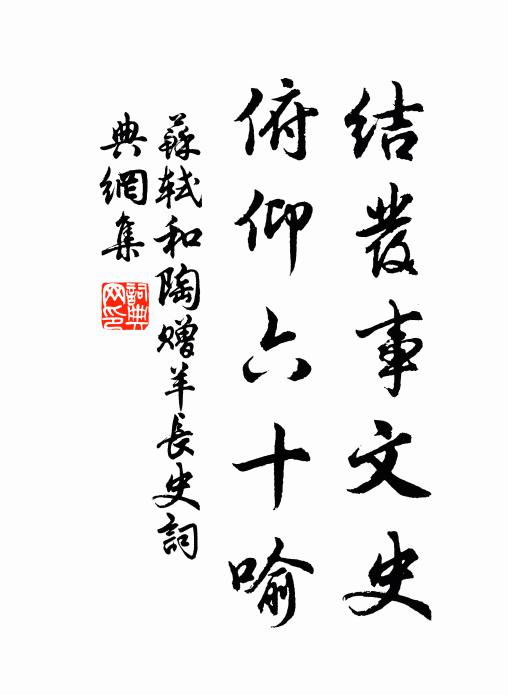 結發事文史
俯仰六十喻
蘇軾和陶贈羊長史詞
典網集
詞典網印